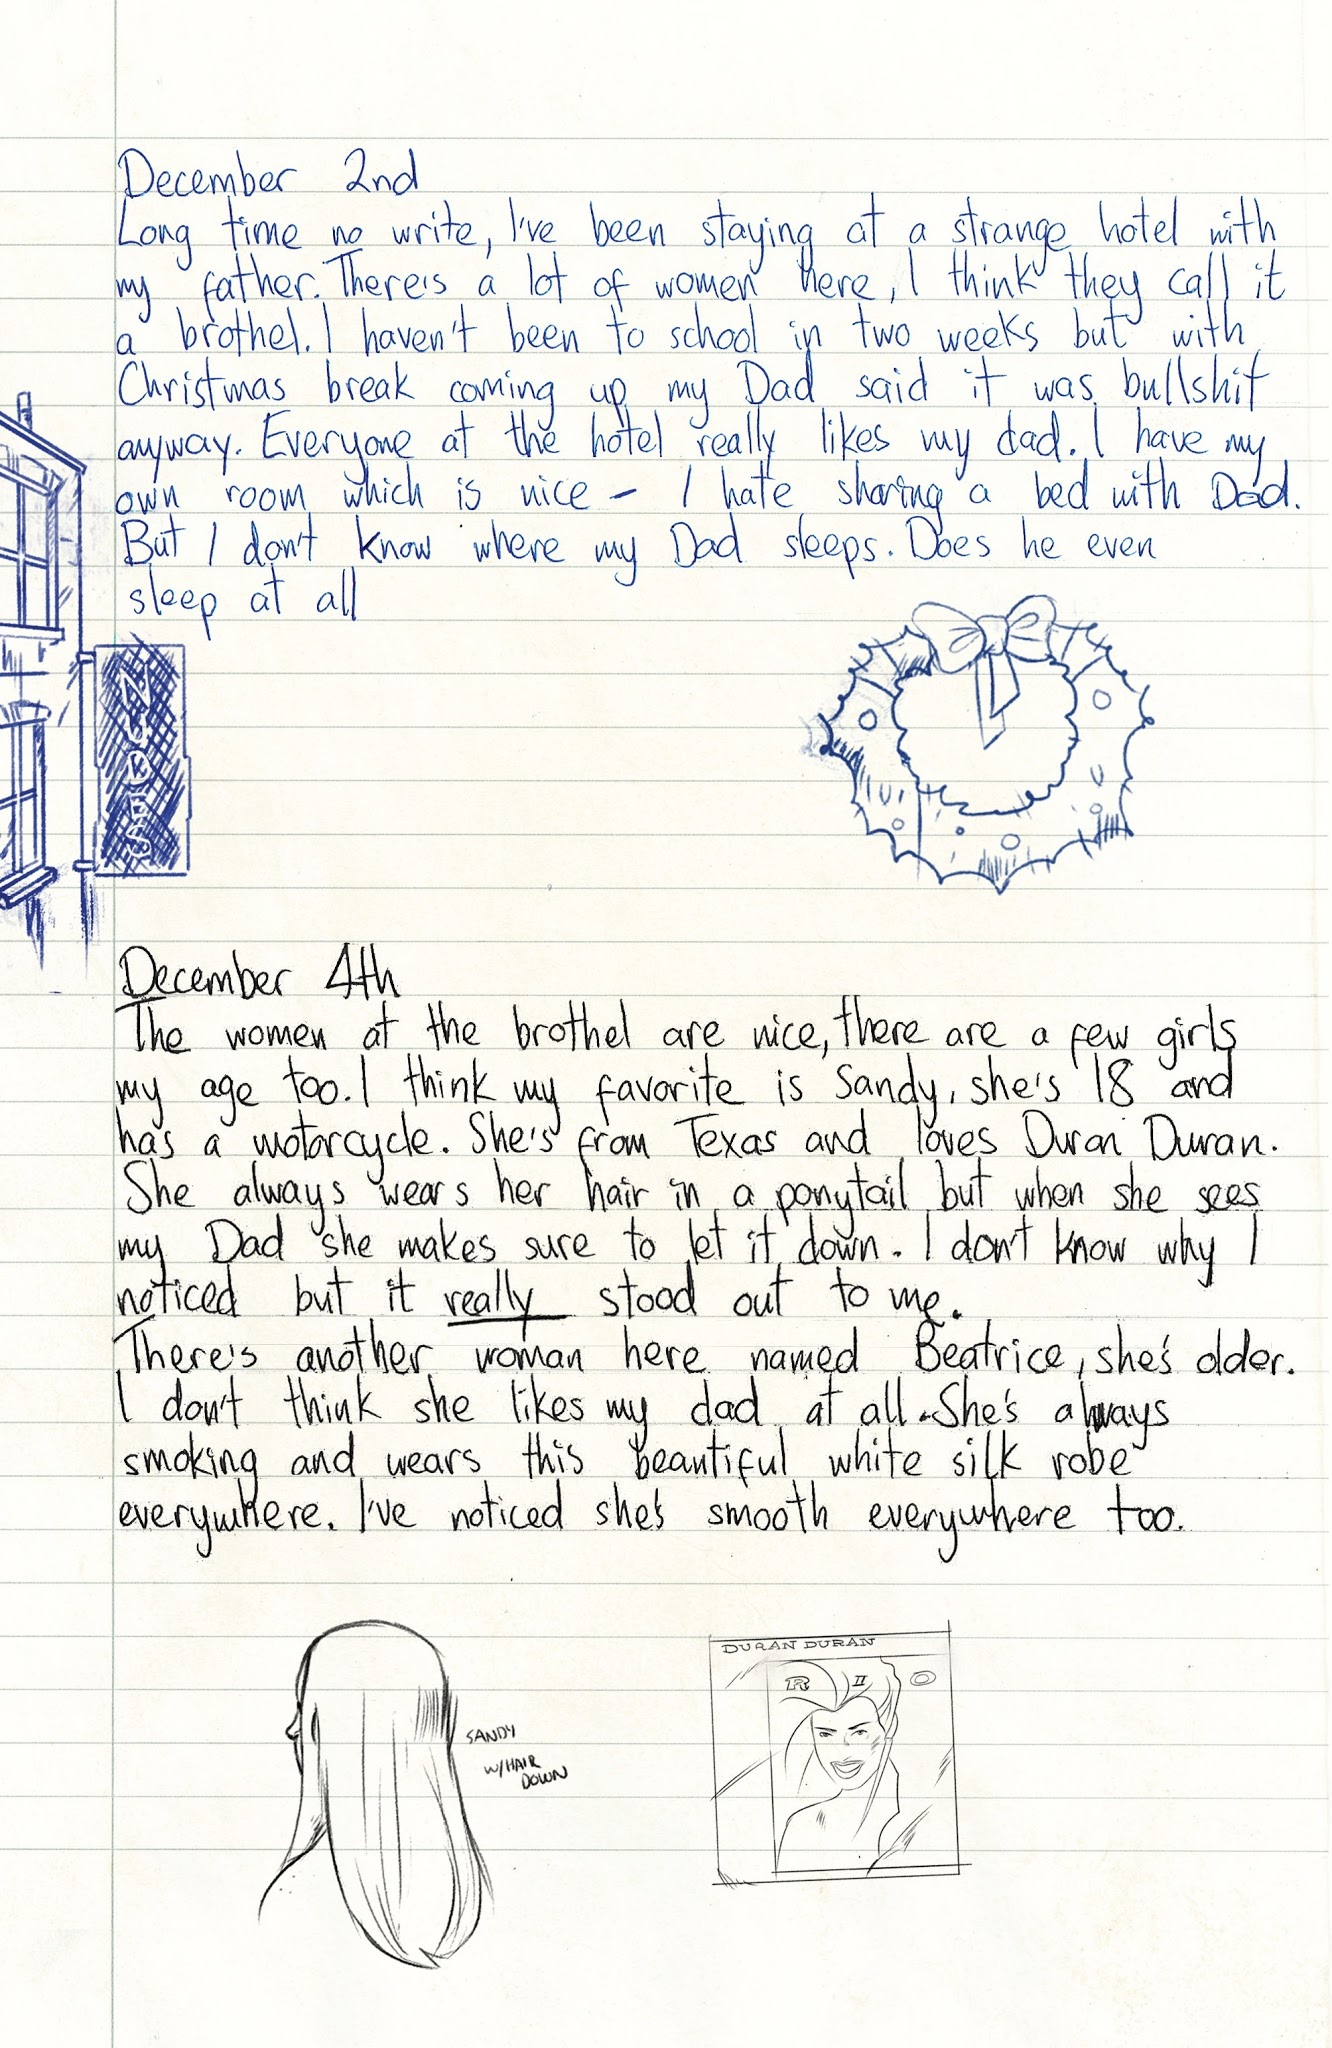 December 2nd
Long time no write, I've been staying at a strange hotel with
my father. There's a lot of women here, I think they call it
a brothel. I haven't been to school in two weeks but with
Christmas break coming up my Dad said it was bullshit
anyway. Everyone at the hotel really likes my dad. I have my
own room which is nice - I hate sharing a bed with Dad.
But I don't know where my Dad sleeps. Does he even
sleep at all
December 4th
The women at the brothel are nice, there are a few girls
my age too. I think my favorite is Sandy, she's 18 and
has a motorcycle. She's from Texas and loves Duran Duran.
She always wears her hair in a ponytail but when she sees
my Dad she makes sure to let it down. I don't know why I
noticed but it really stood out to me.
There's another woman here named Beatrice, she's older.
I don't think she likes my dad at all. She's always
smoking and wears this beautiful white silk robe
everywhere. I've noticed she's smooth everywhere too.
SANDY
W/HAIR
DOWN
DURAN DURAN
RIO